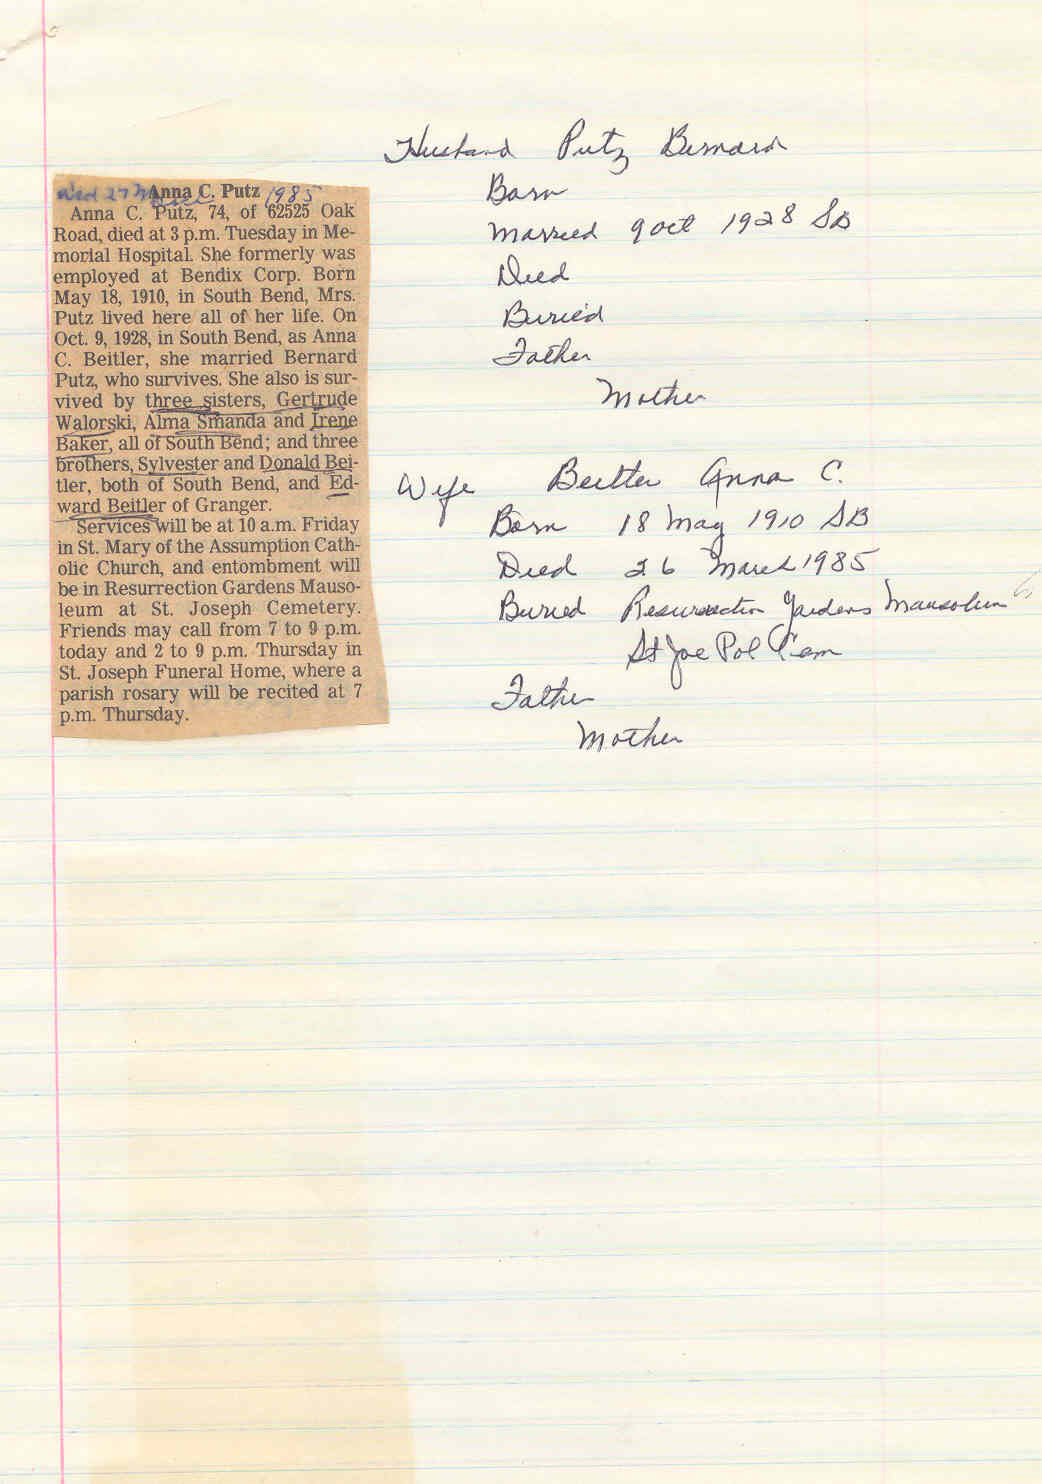 Wed 27 March 1985
Anna C. Putz
Anna C. Putz, 74, of 62525 Oak
Road, died at 3 p.m. Tuesday in Me-
morial Hospital. She formerly was
employed at Bendix Corp. Born
May 18, 1910, in South Bend, Mrs.
Putz lived here all of her life. On
Oct. 9, 1928, in South Bend, as Anna
C. Beitler, she married Bernard
Putz, who survives. She also is sur-
vived by three sisters, Gertrude
Walorski, Alma Smanda and Irene
Baker, all of South Bend; and three
brothers, Sylvester and Donald Bei-
tler, both of South Bend, and Ed-
ward Beitler of Granger.
Services will be at 10 a.m. Friday
in St. Mary of the Assumption Cath-
olic Church, and entombment will
be in Resurrection Gardens Mauso-
leum at St. Joseph Cemetery.
Friends may call from 7 to 9 p.m.
today and 2 to 9 p.m. Thursday in
St. Joseph Funeral Home, where a
parish rosary will be recited at 7
p.m. Thursday.
Husband Putz Bernard
Born
Married 9 Oct 1928 SB
Died
Buried
Father
Mother
Wife Beitler Anna C.
Born 18 May 1910 SB
Died 26 March 1985
Buried Resurrection Gardens Mausoleum
St Joe Pol Cem
Father
Mother